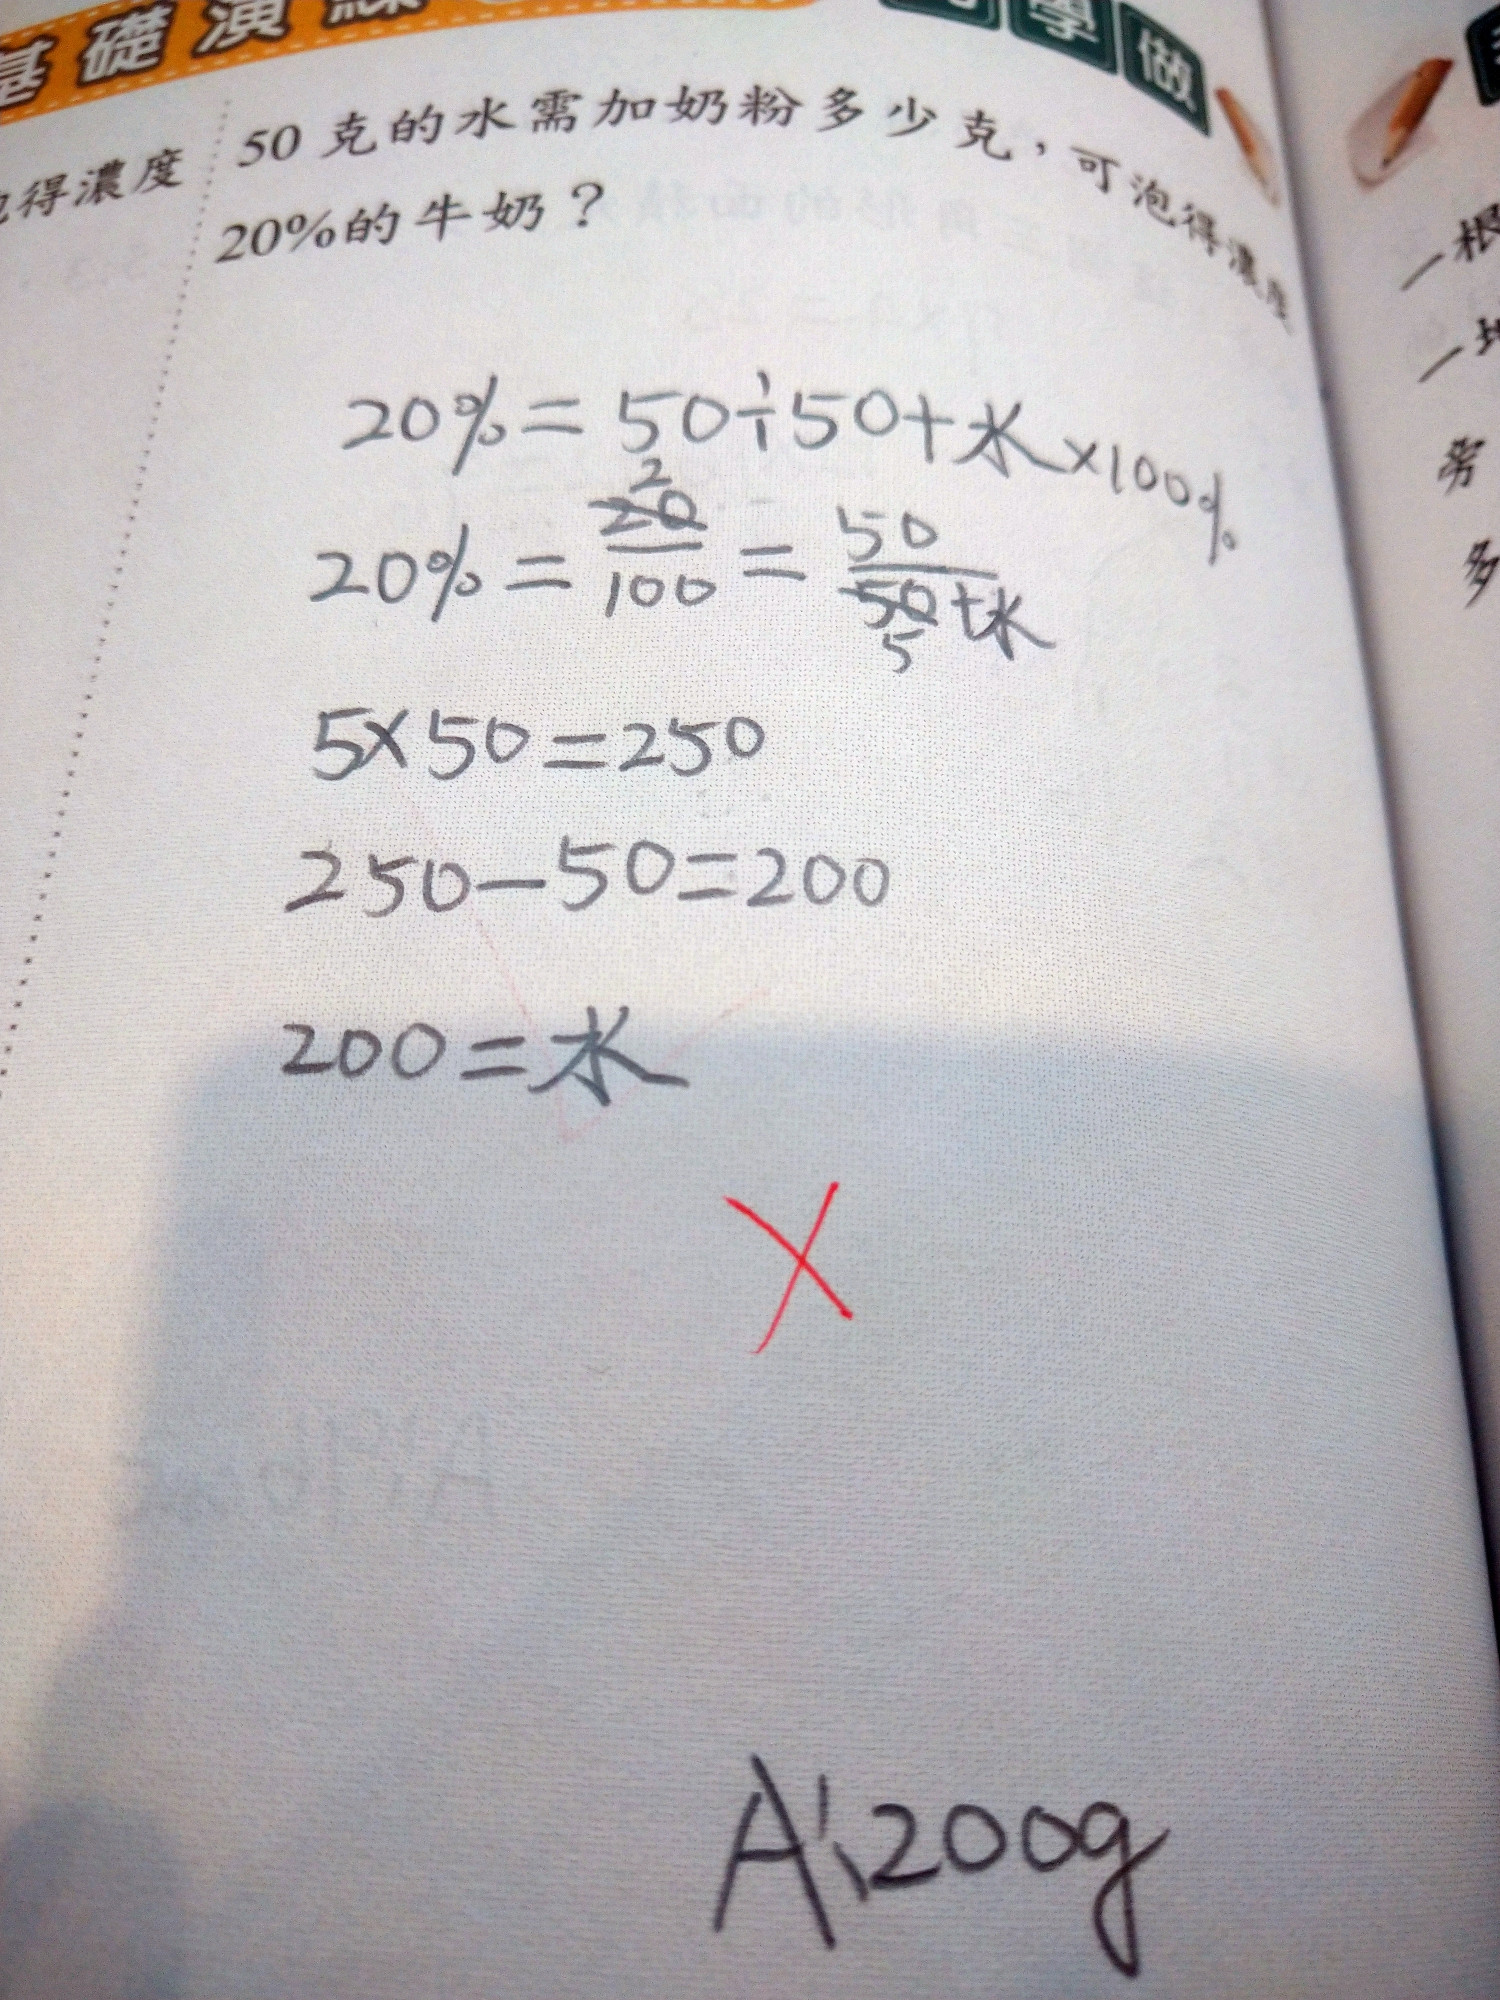 基礎演練
學做
得濃度
50 克的水需加奶粉多少克，可泡得濃度
20%的牛奶？
20%=50÷50+水×100%
20%=20/100=50/50+水
2
5
5×50=250
250-50=200
200=水
A:200g
一根
一
旁
多